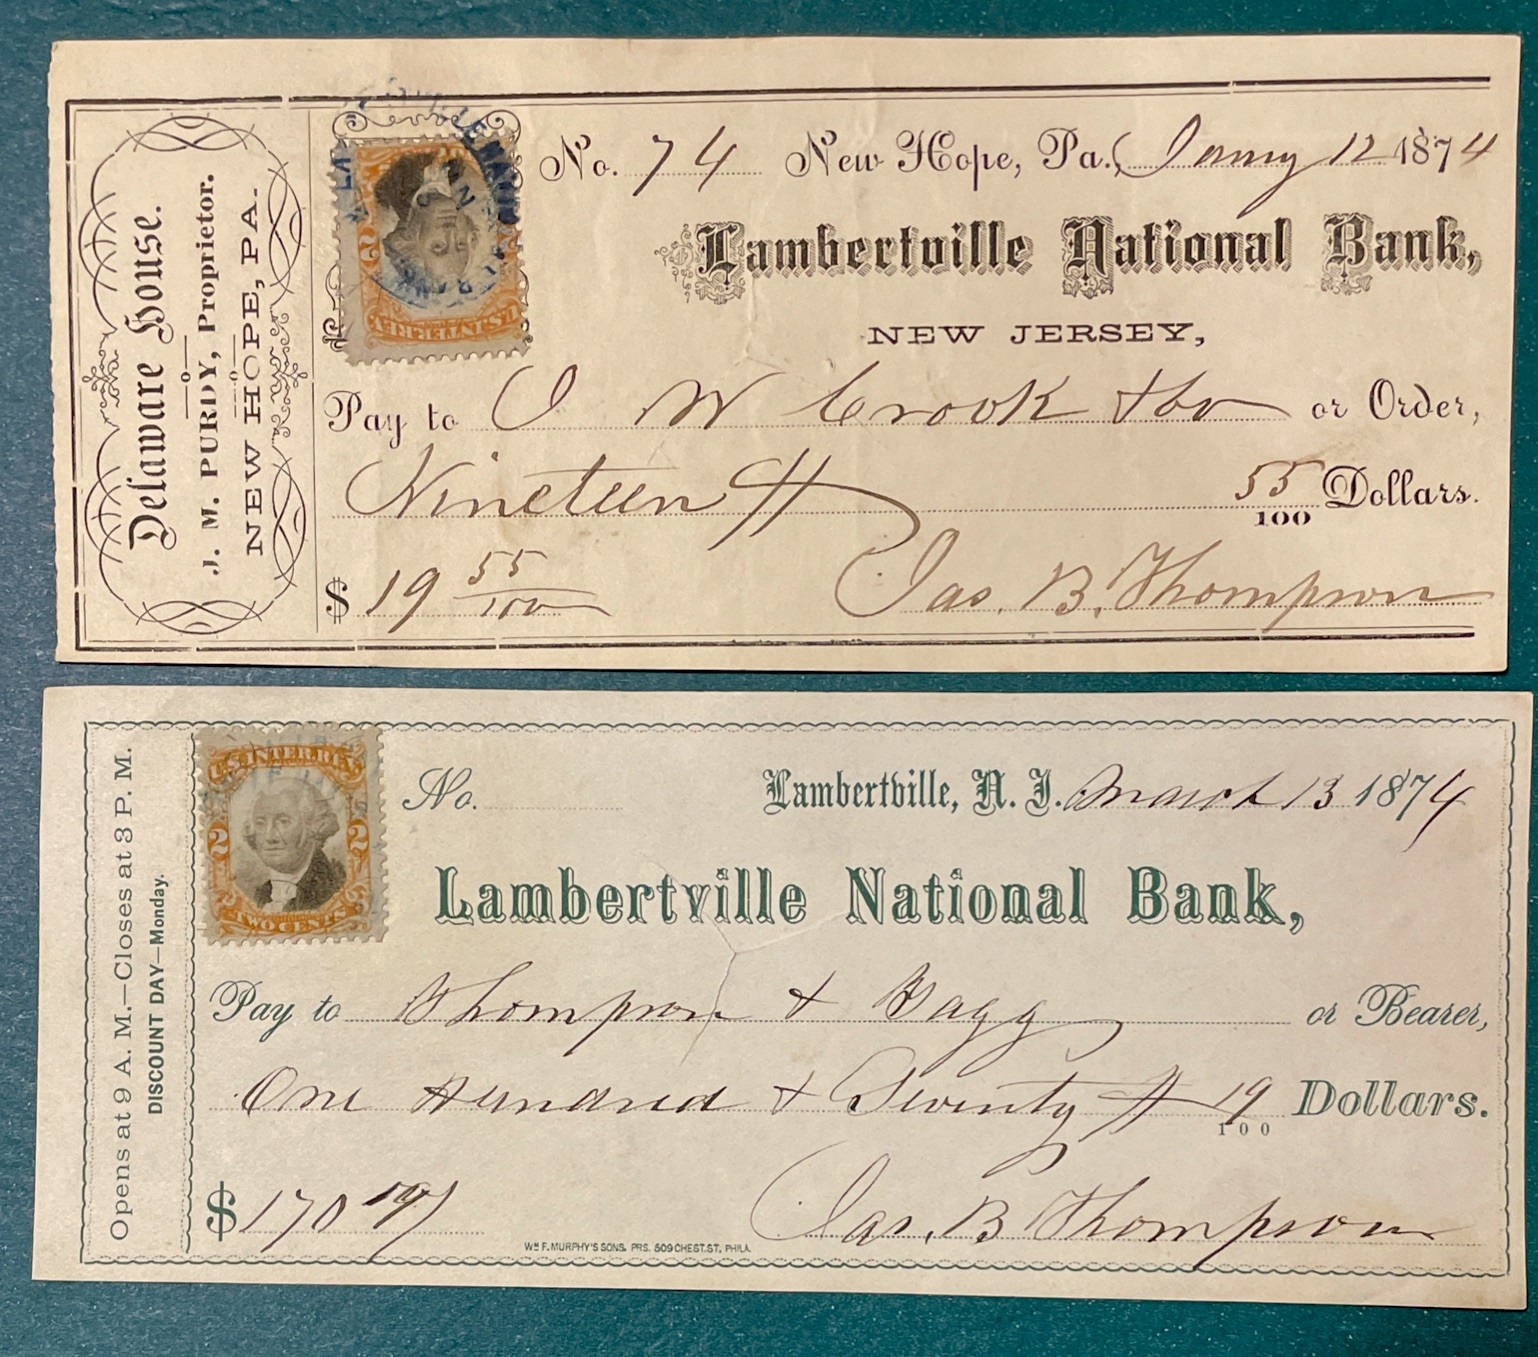 Delaware House.
J. M. PURDY, Proprietor.
NEW HOPE, PA.
U.S. INTER. REV.
2
No. 74 New Hope, Pa., Jany 12 1874
Lambertville National Bank,
NEW JERSEY,
Pay to J W Crook & Co or Order,
Nineteen 55/100 Dollars.
$ 19 55/100 Jas. B. Thompson
Opens at 9 A. M.—Closes at 3 P. M.
DISCOUNT DAY—Monday.
U.S. INTER. REV.
2 2
TWO CENTS
No. Lambertville, N. J. March 13 1874
Lambertville National Bank,
Pay to Thompson & Gagg or Bearer,
One Hundred & Seventy 19/100 Dollars.
$ 170 19/ Jas. B Thompson
WM F. MURPHY'S SONS. PRS. 509 CHEST. ST. PHILA.